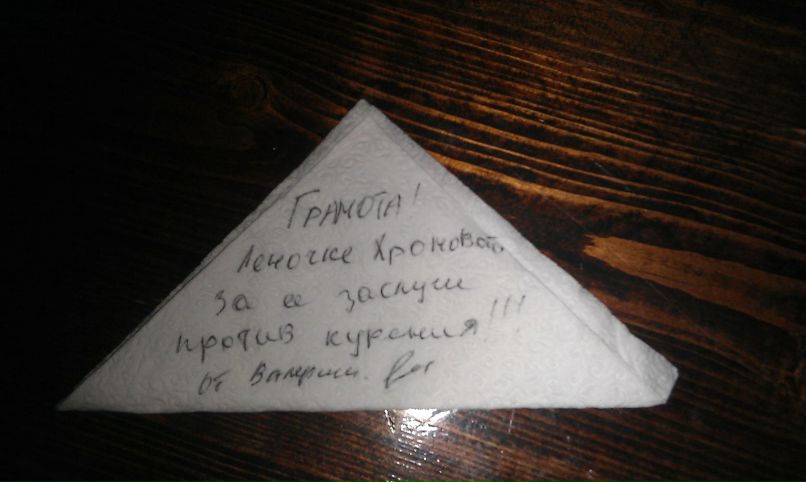 ГРАМОТА!
Леночке Хромовой
за ее заслуги
против курения!!!
от Валерии.